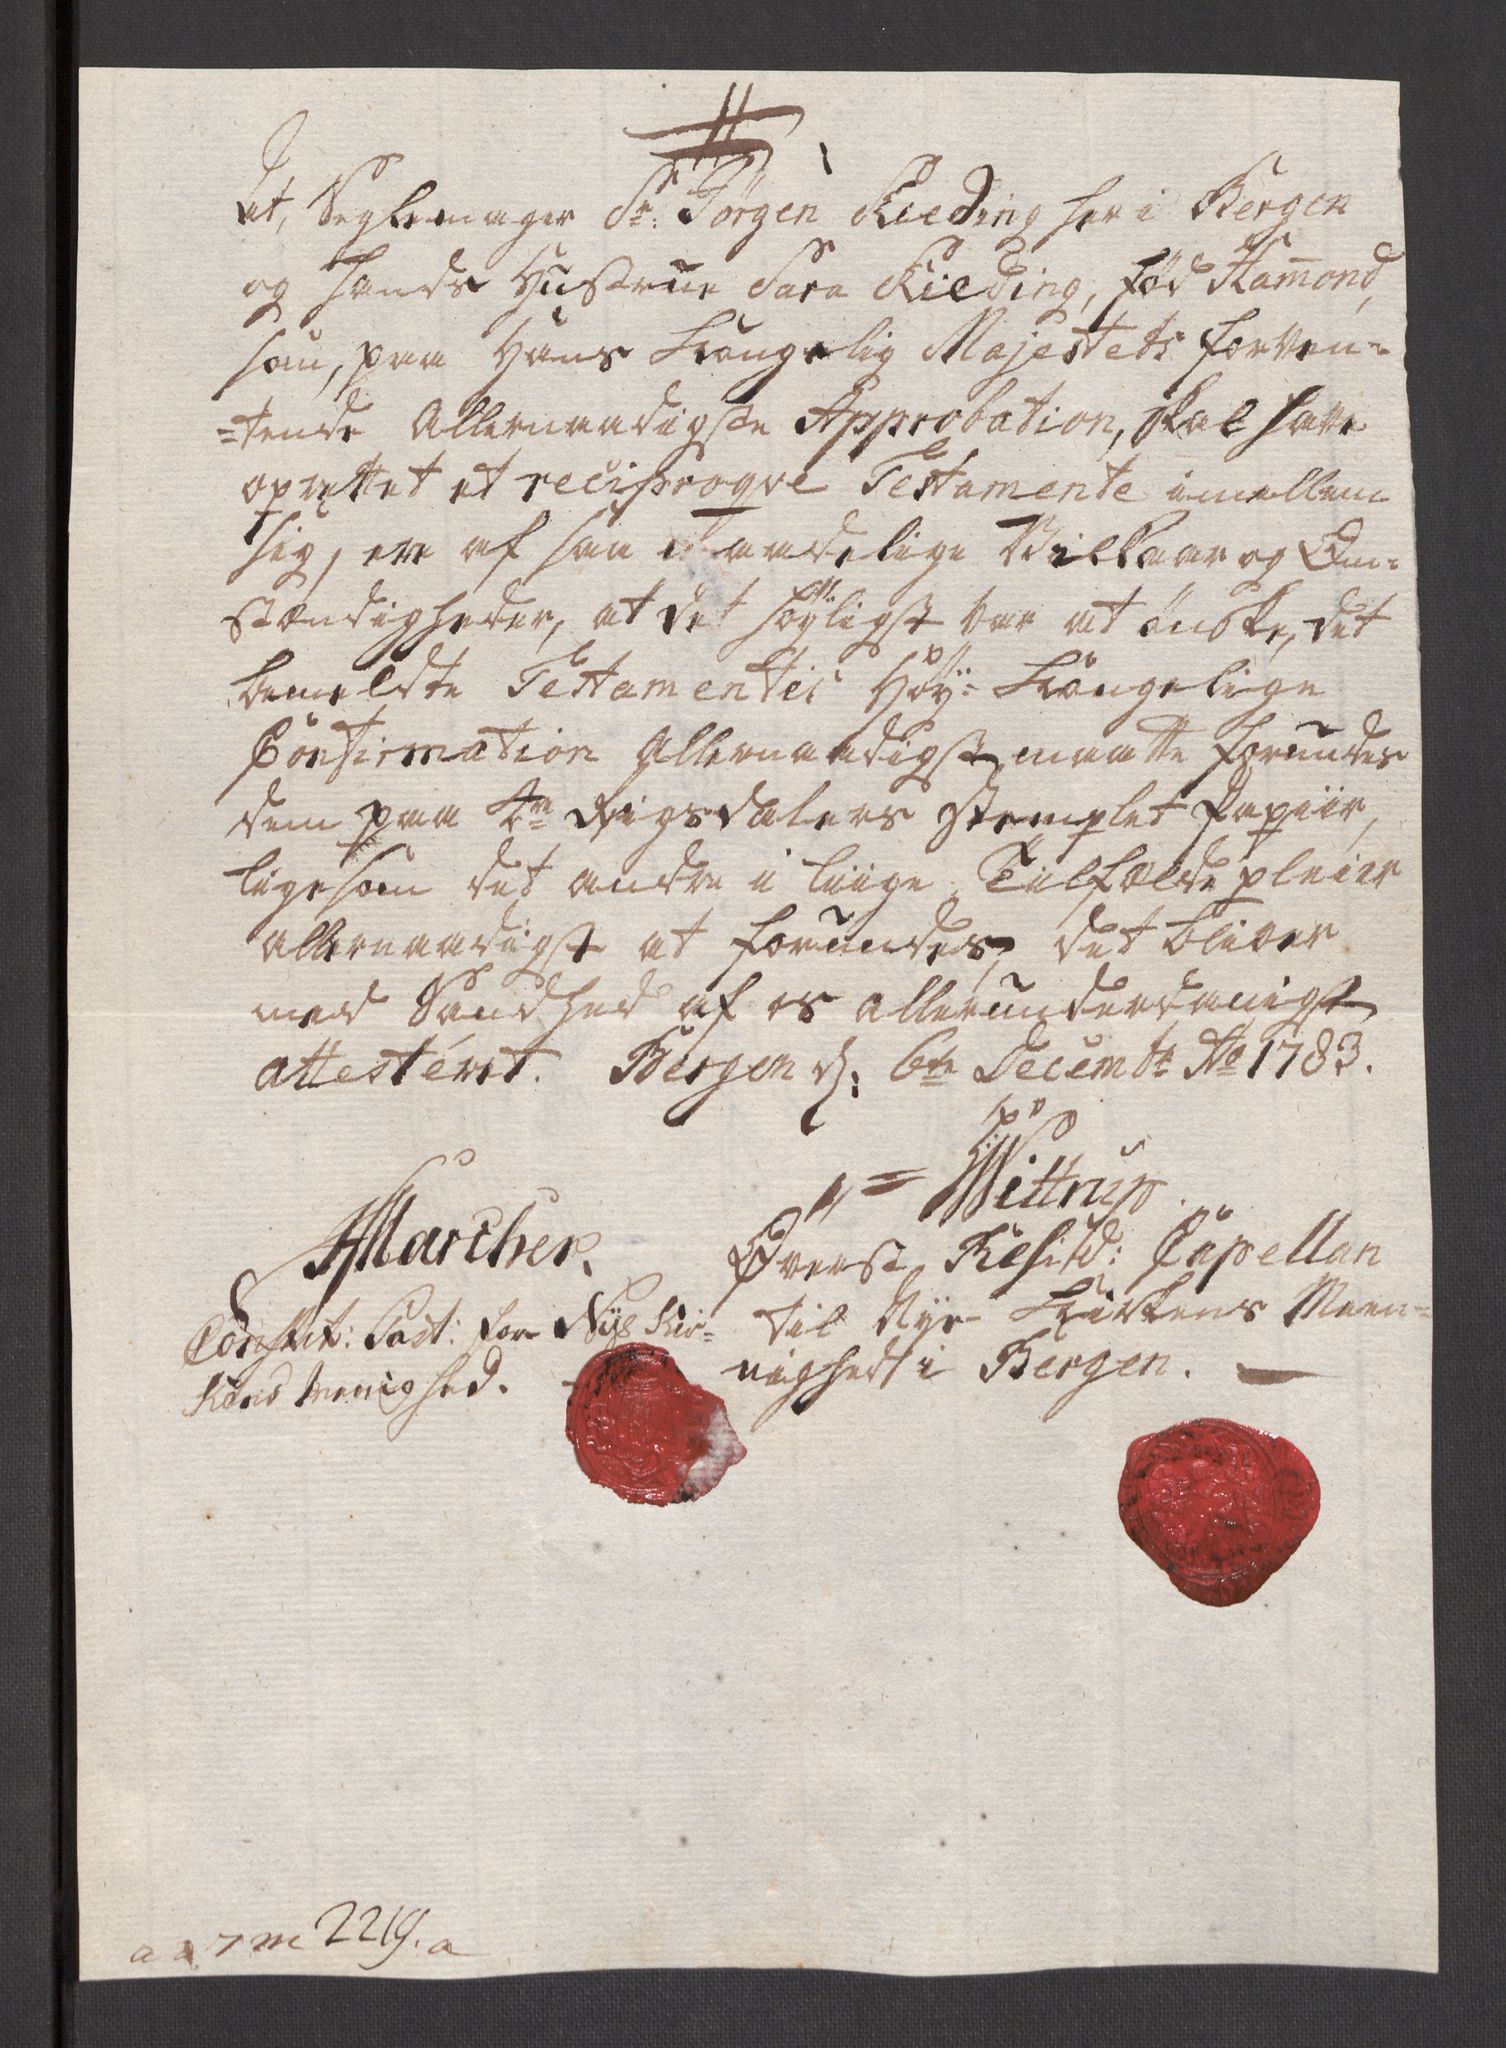 At, Seglemager Sr: Jörgen Kieding her i Bergen
og hands Hustrue Sara Kielding, född Hammond,
som, paa Hans Kongelig Majestets forven-
-tende Allernaadigste Approbation, skal have
oprettet et reciproqve Testamente imellem
sig, ere af saa maadelige Vilkaar og Om-
stændigheder, at det höyligst var at önske, det
bemeldte Testamentes Höy- Kongelige
Confirmation Allernaadigst maatte forundes
dem paa tre Rigsdalers stemplet Papiir,
ligesom det andre i liige Tilfælde pleier
allernaadigst at forundes, det bliver
med Sandhed af os allerunderdanigst
attesteret. Bergen d: 6te Decembr Ao 1783.
Marcher.
Constit: Past: for Nye Kir-
kens Menighed.
Wittrup.
Överst Resid: Capellan
til Nye- Kirkens Meen-
nighed i Bergen.
2219.